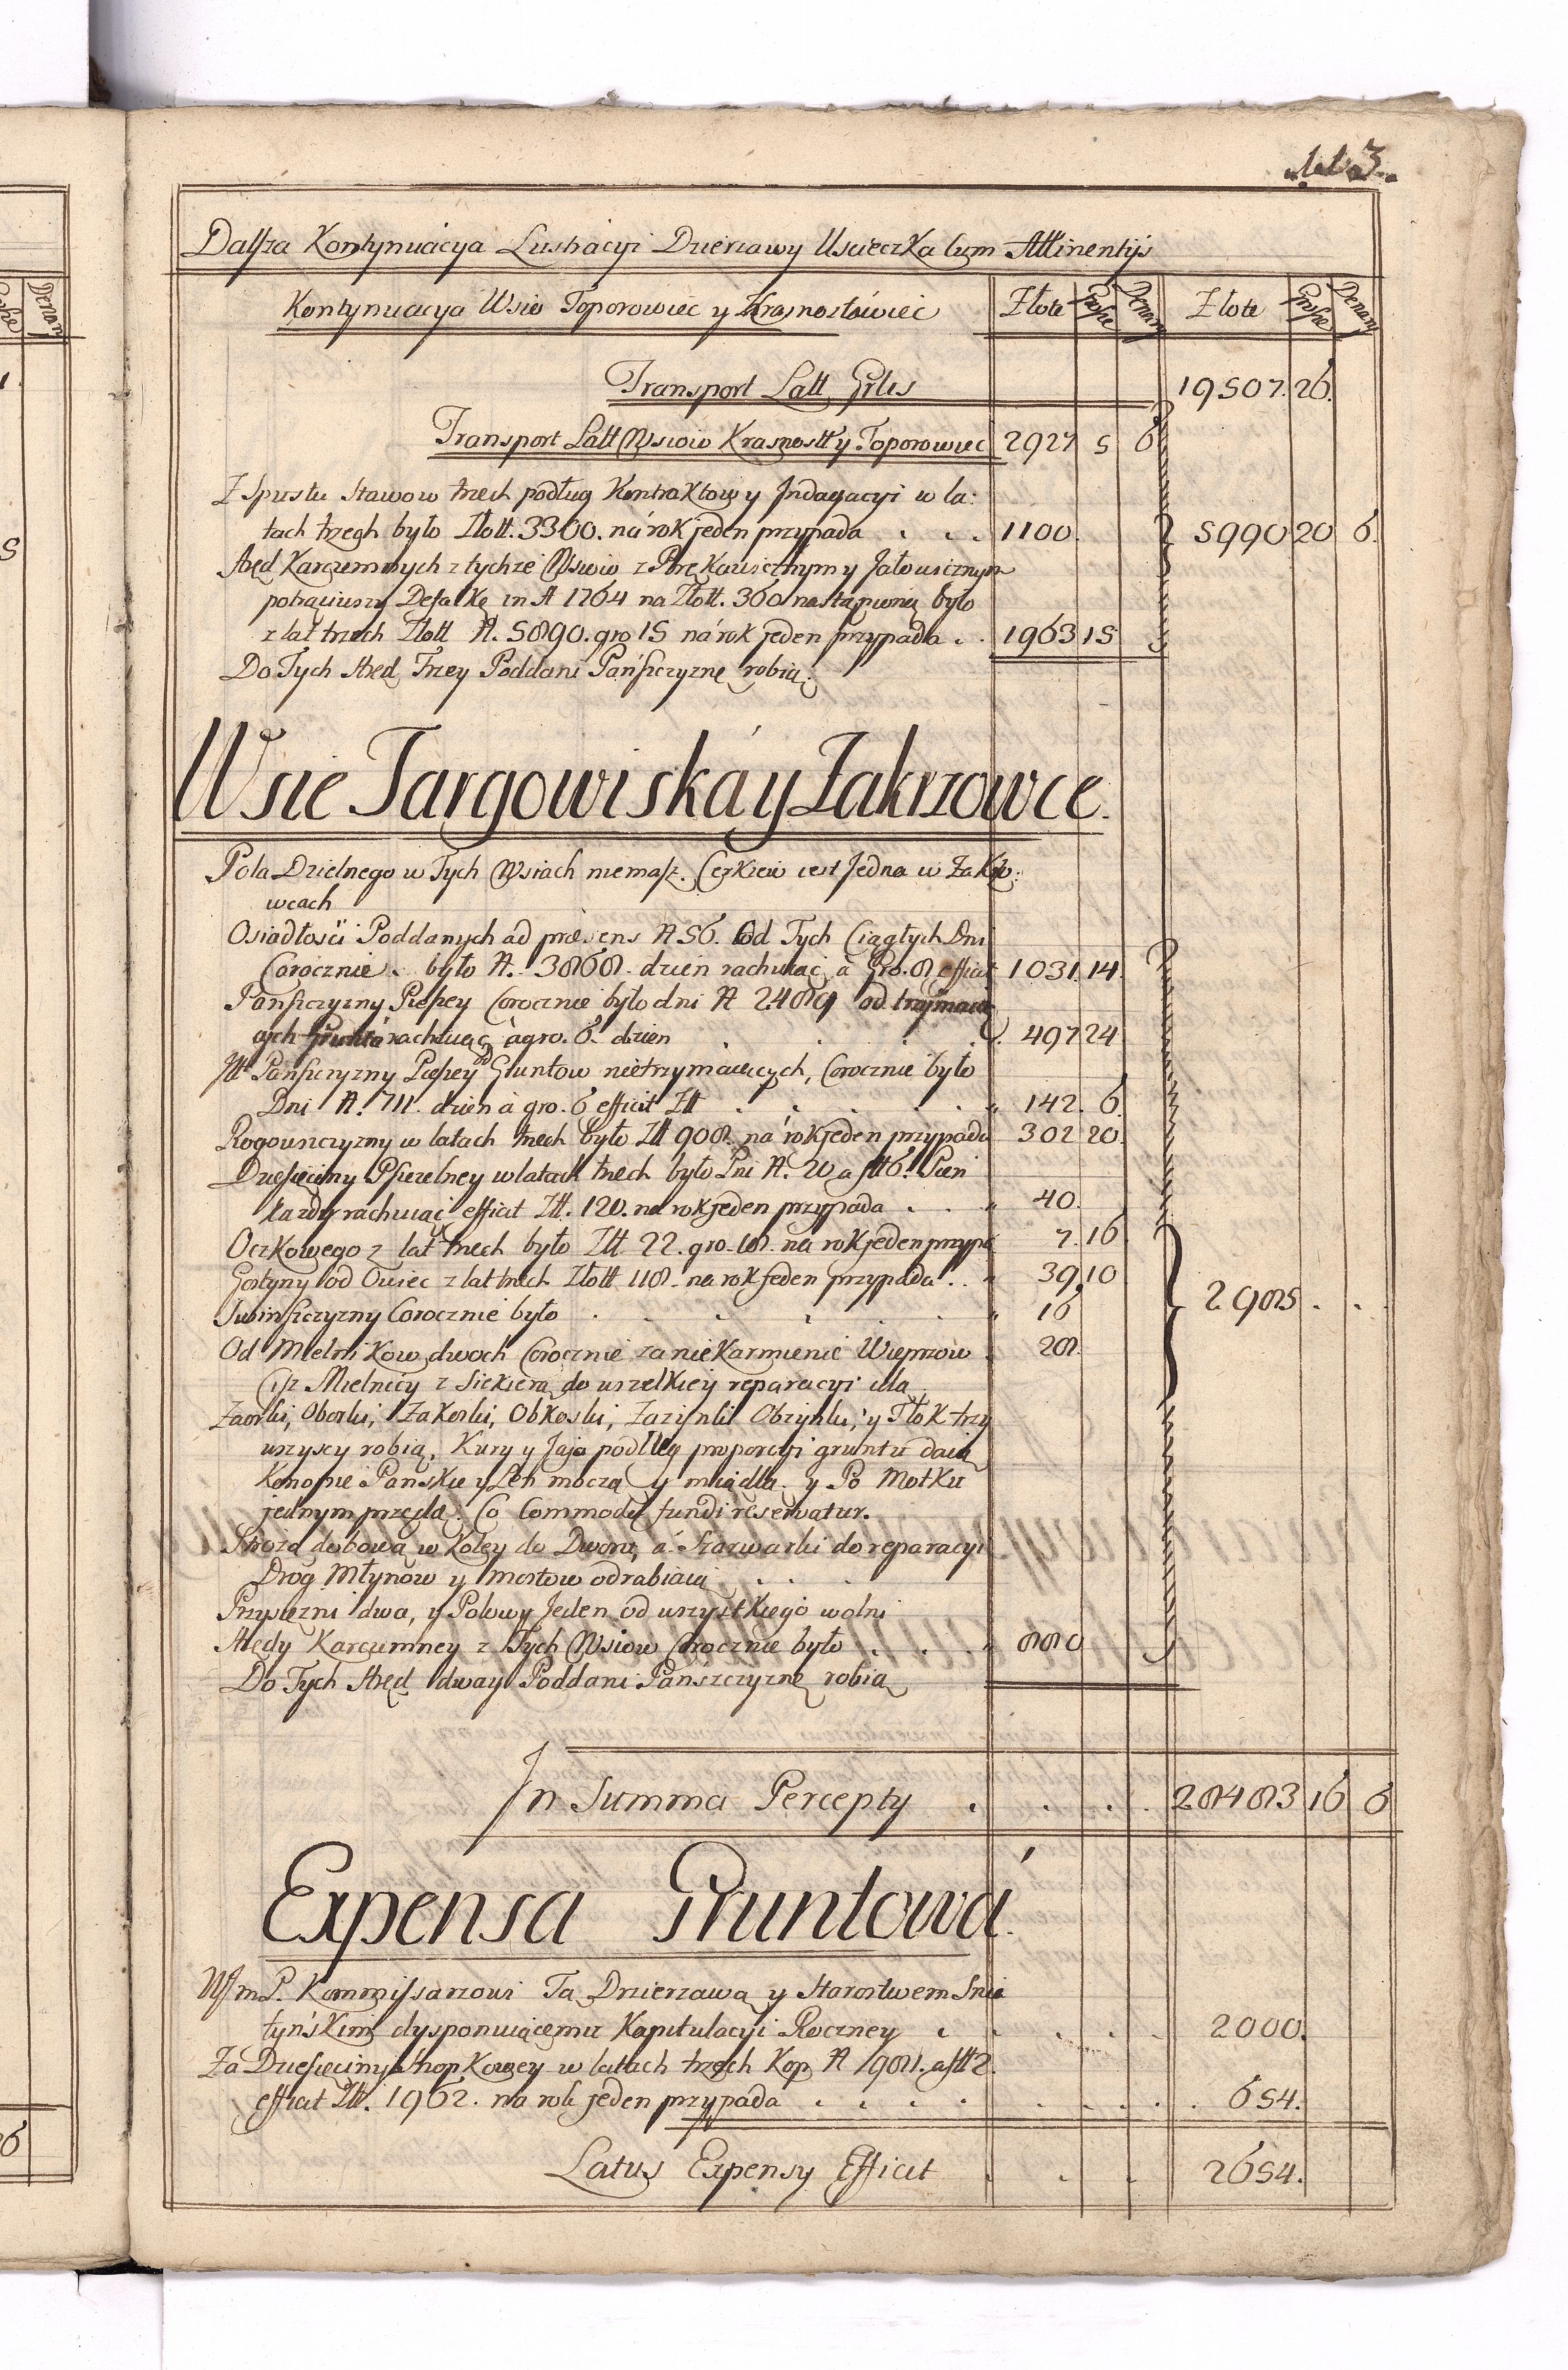 Lat. 3.
Dalsza Kontynuacya Lustracyi Dzierzawy UscieczKa Cum Attinentijs
Kontynuacya Wsiow Toporowiec y Krasnostawiec Złote Grosze Denary Złote Grosze Denary
Transport Latt Gtles 19507. 26.
Transport Latt Wsiow Krasnostt y Toporowiec 2927 5 6
Z Spustu Stawow trzech podług Kontraktow y Jndagacyi w la:
tach trzech było Złott. 3300. ná rok jeden przypada . . . 1100. 5990 20 6.
Aręd Karczemnych z tychże Wsiow z Jałowicznym
potrąciwszy DefalKę in A 1764 na Złott. 360 nastąpioną było
z lat trzech Złott N. 5890. gro 15 ná rok jeden przypada . . 1963 15
Do Tych Aręd Trzey Poddani Pańszczyznę robią.
Wsie Targowiská y Zakrzowce.
Pola Dzielnego w Tych Wsiach niemasz. CerKiew iest Jedna w ZaKrzo:
wcach
Osiadłości Poddanych ad praesens N 56. Od Tych Ciągłych Dni
Corocznie . było N. 3868. dzien rachuiąc á Gro. 8 efficit 1031. 14.
Panszczyzny Pieszey Corocznie było dni N 2489 od trzymaią
cych Grunta rachuiąc á gro. 6. dzien . . . . 497 24
Panszczyzny Pieszey od Gruntow nietrzymaiących, Corocznie było
Dni N. 711. dzien á gro. 6 efficit Ztt . . . . . 142. 6.
Rogowszczyzny w latach trzech było Ztt 908. na rok jeden przypada 302 20.
Dziesięciny Pszczelney w latach trzech było Pni N. 20 a ztt 6. Pień
każdy rachuiąc efficit Ztt. 120. na rok jeden przypada . . . 40.
OczKowego z lat trzech było Ztt. 22. gro. 18. na rok jeden przypa 7. 16
Gostyny od Owiec z lat trzech Złott 118. na rok jeden przypada . . 39 10
Corocznie było . . . . . . 16 2985 . . .
Od MielniKow dwoch Corocznie za nieKarmienie Wieprzow . 28.
Ciż Mielnicy z Siekierą do wszelkiey reparacyi idą
Zaorki, Oborki, ZaKoski, ObKoski, Zazynki Obzynki, y TłoK trzy
wszyscy robią. Kury y Jaja podług proporcyi gruntu daią
Konopie Panskie y Len moczą y miądlą. y Po MotKu
jednym przędą. Co Commodu fundi reservatur.
Stróżą dobową w Koley do Dworu, á Szarwarki do reparacyi
Dróg Młynow y Mostow odrabiaią . . .
Przysiężni dwa, y Polowy Jeden od wszystKiego wolni
Arędy Karczemney z Tych Wsiow Corocznie było . . . 880
Do Tych Aręd dway Poddani Pańszczyznę robią
Jn Summa Percepty . . . . 28483 16 6
Expensa Gruntowá.
P. Kommissarzowi Tą Dzierzawą y Starostwem Snia
tyńsKim dysponuiącemu Kapitulacyi Roczney . . . . . 2000.
Za Dziesięcinę SnopKowey w latach trzech Kop N 1981. a ztt 2.
efficit Ztt. 1962. na rok jeden przypada . . . . . . . . 654.
Latus Expensy Efficit . . . 2654.